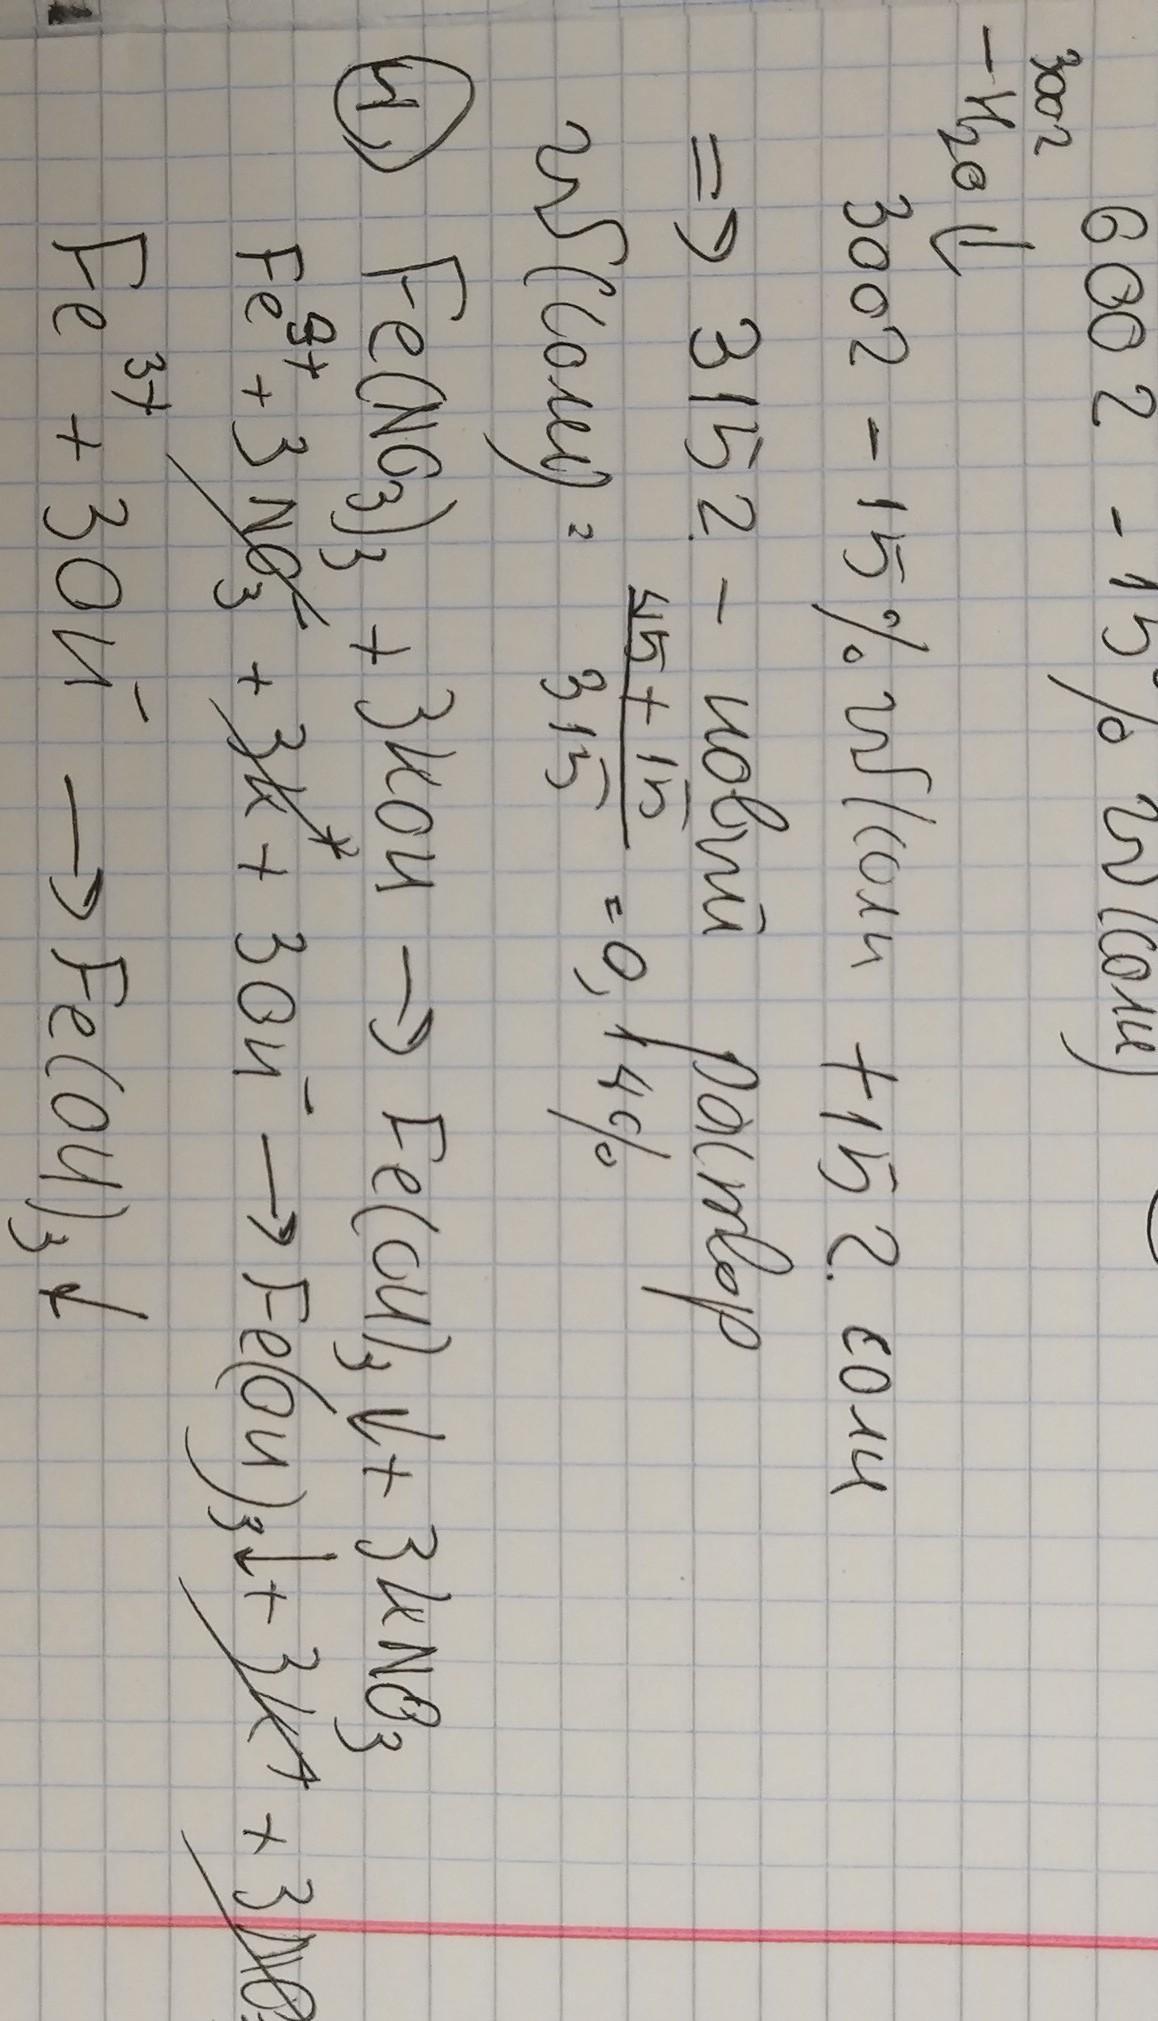 600г - 15% w(соли)
300г
-H₂O ↓
300г - 15% w(соли +15г. соли
=> 315г - новый раствор
w(соли) = (45 + 15)/315 = 0,14%
4) Fe(NO₃)₃ + 3KOH → Fe(OH)₃↓ + 3KNO₃
Fe³⁺ + 3NO₃⁻ + 3K⁺ + 3OH⁻ → Fe(OH)₃↓ + 3K⁺ + 3NO₃
Fe³⁺ + 3OH⁻ → Fe(OH)₃↓